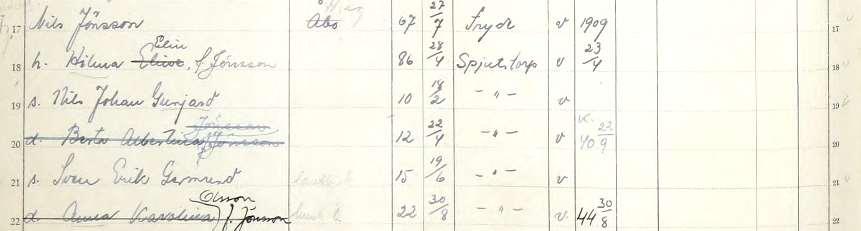 17 Nils Jönsson Åbo 67 27/7 Fryele v 1909 17
18 h. Hilma Elise Elin, f. Jönsson 86 28/4 Spjutstorp v 23/4 18
19 s. Nils Johan Gunjard 10 18/2 – " – v 19
20 d. Berta Albertina Jönsson f. Jönsson 12 22/4 – " – v 40 22/9 20
21 s. Sven Erik Germund 15 19/6 – " – v 21
22 d. Anna Karolina Olsson f. Jönsson 22 30/8 – " – v. 44 30/8 22